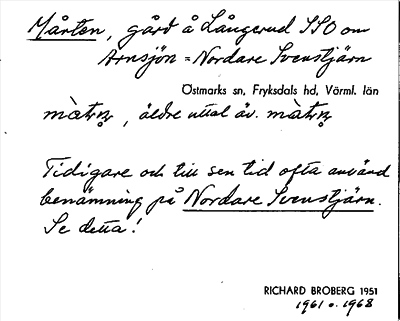 Mårten, gård å Långerud SSO om
Arnsjön = Nordare Svenstjärn
Östmarks sn, Fryksdals hd, Värml. län
màtn̥, äldre uttal äv. màtn̥
Tidigare och till sen tid ofta använd
benämning på Nordare Svenstjärn.
Se detta!
RICHARD BROBERG 1951
1961 o. 1968